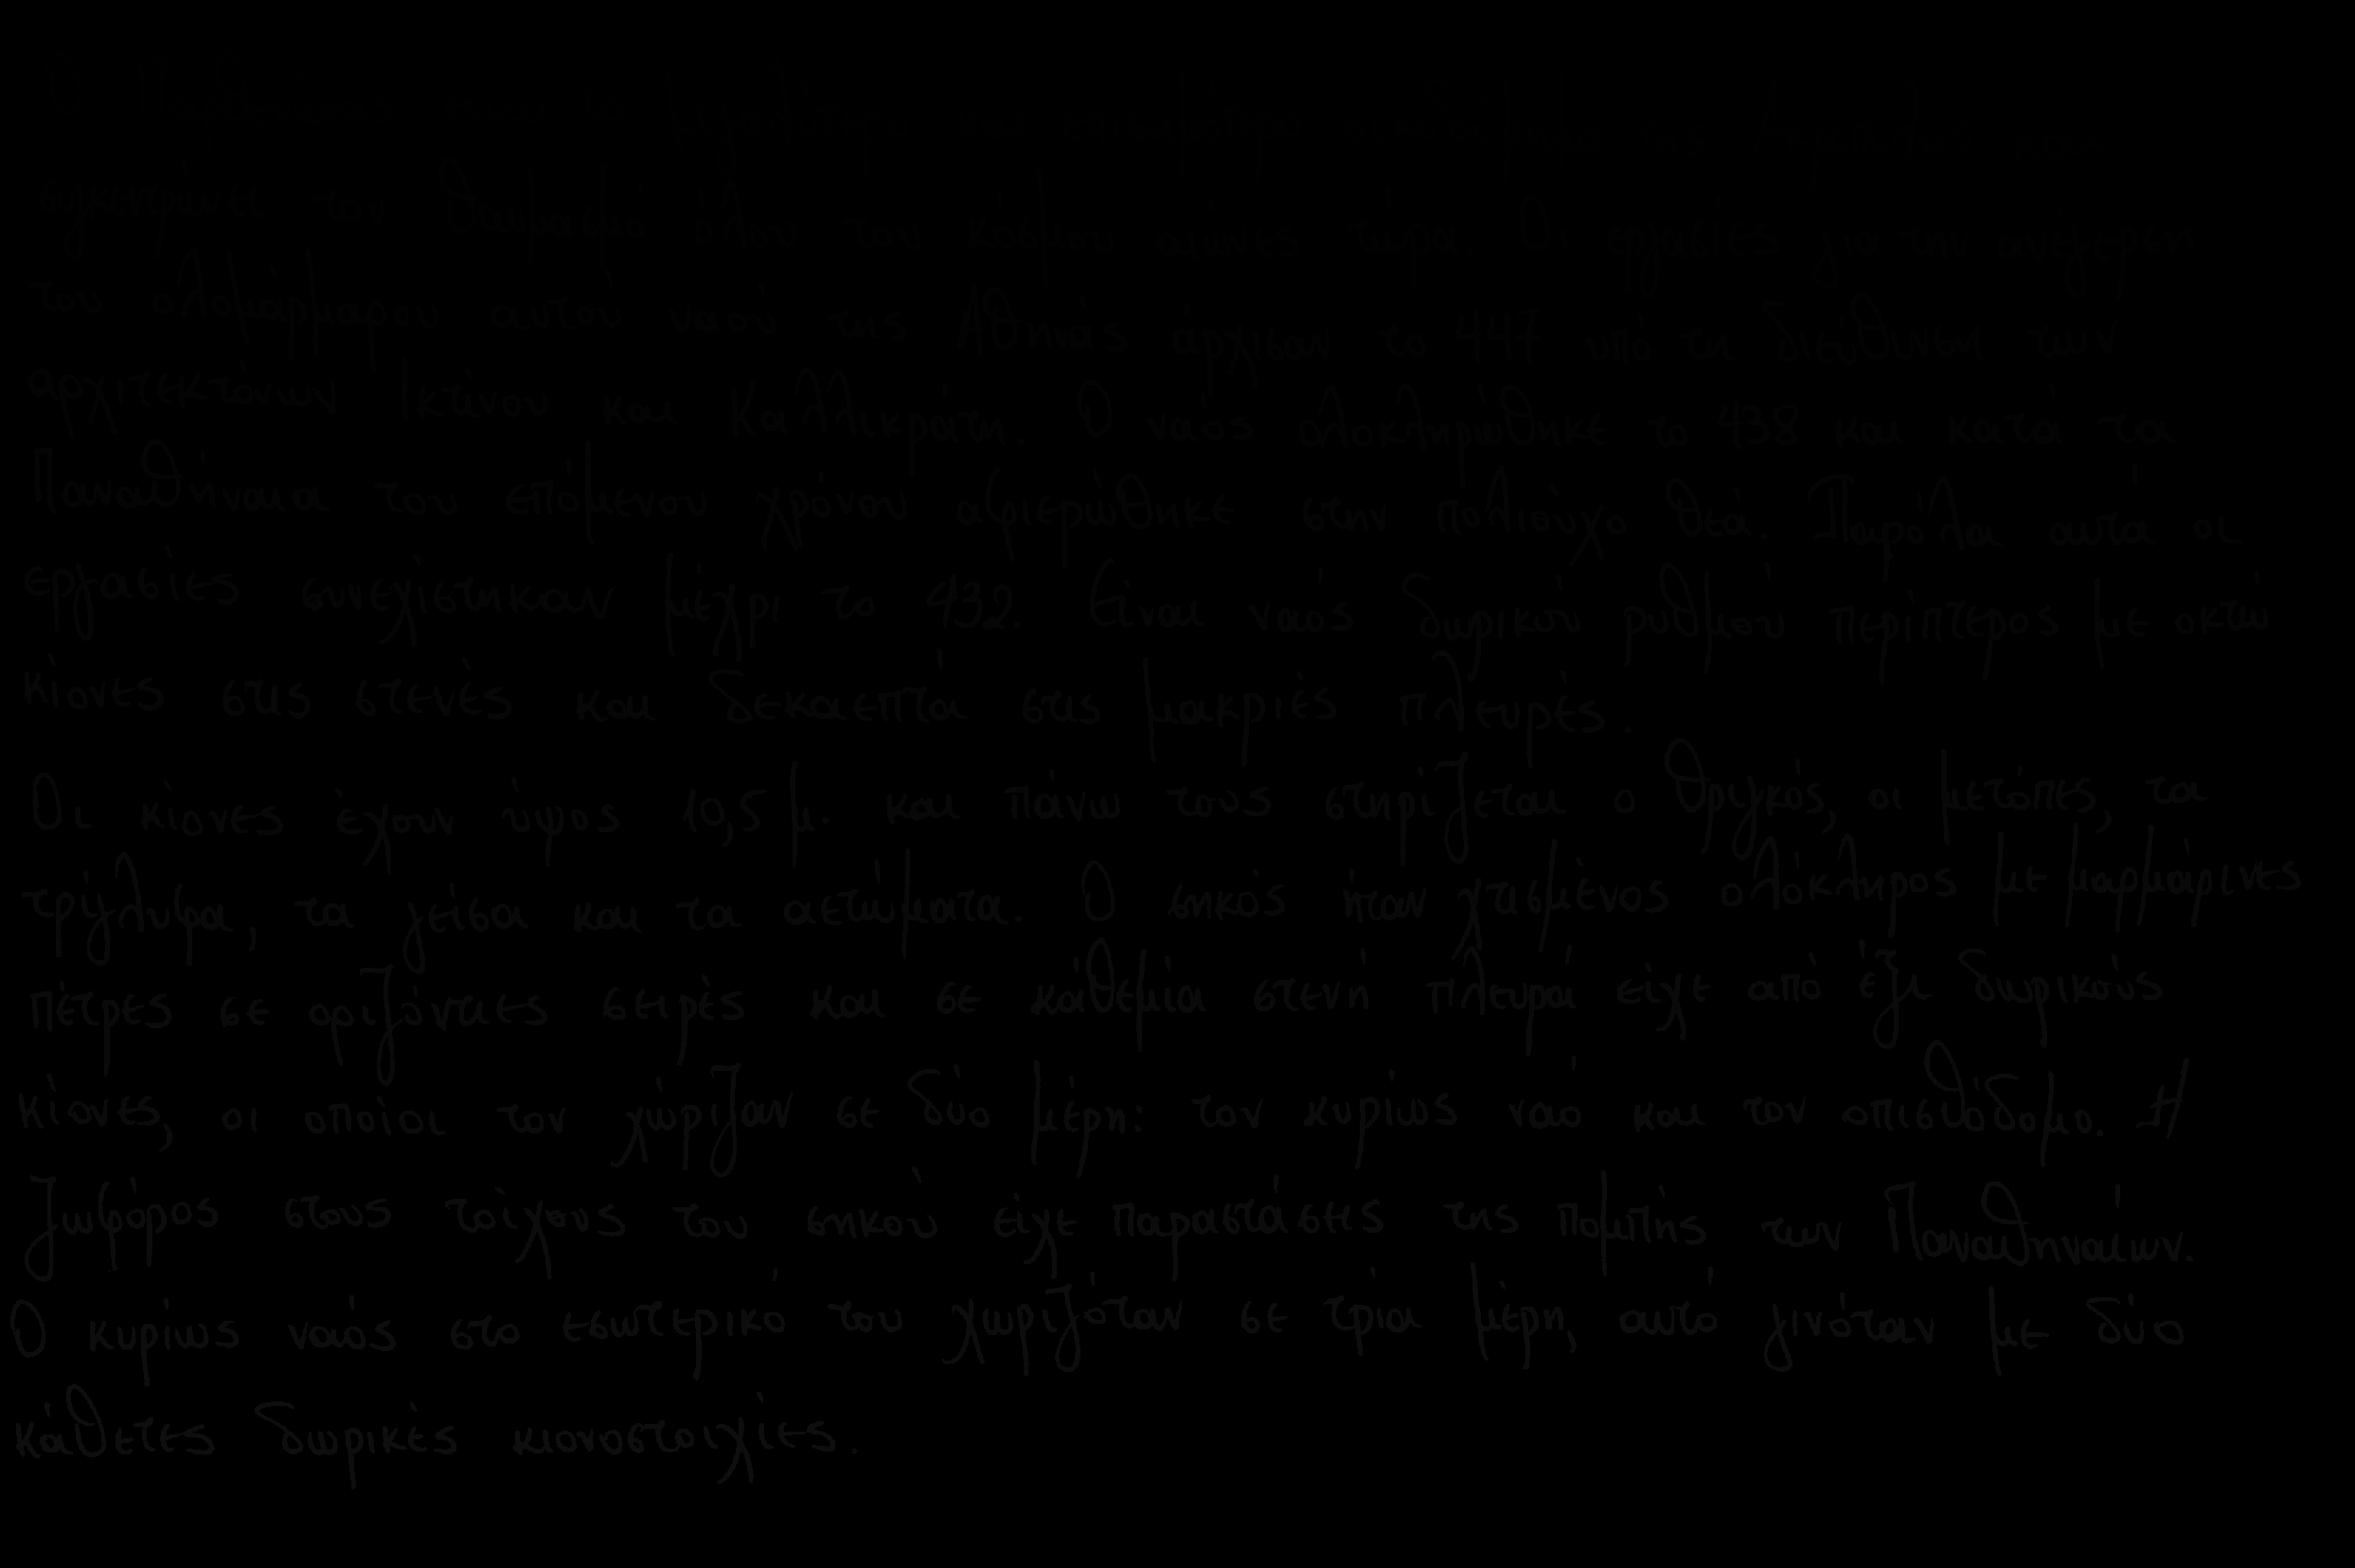 Ο Παρθενώνας είναι το μεγαλύτερο και επισημότερο οικοδόμημα της Ακρόπολης που
συγκεντρώνει τον θαυμασμό όλου του κόσμου αιώνες τώρα. Οι εργασίες για την ανέγερση
του ολομάρμαρου αυτού ναού της Αθηνάς άρχισαν το 447 υπό τη διεύθυνση των
αρχιτεκτόνων Ικτίνου και Καλλικράτη. Ο ναός ολοκληρώθηκε το 438 και κατά τα
Παναθήναια του επόμενου χρόνου αφιερώθηκε στην πολιούχο θεά. Παρόλα αυτά οι
εργασίες συνεχίστηκαν μέχρι το 432. Είναι ναός δωρικού ρυθμού περίπτερος με οκτώ
κίονες στις στενές και δεκαεπτά στις μακριές πλευρές.
Οι κίονες έχουν ύψος 10,5 μ. και πάνω τους στηρίζεται ο θριγκός, οι μετόπες, τα
τρίγλυφα, τα γείσα και τα αετώματα. Ο σηκός ήταν χτισμένος ολόκληρος με μαρμάρινες
πέτρες σε οριζόντιες σειρές και σε κάθεμία στενή πλευρά είχε από έξι δωρικούς
κίονες, οι οποίοι τον χώριζαν σε δύο μέρη: τον κυρίως ναό και τον οπισθόδομο. Η
ζωφόρος στους τοίχους του σηκού είχε παραστάσεις της πομπής των Παναθηναίων.
Ο κυρίως ναός στο εσωτερικό του χωριζόταν σε τρία μέρη, αυτό γινόταν με δύο
κάθετες δωρικές κιονοστοιχίες.